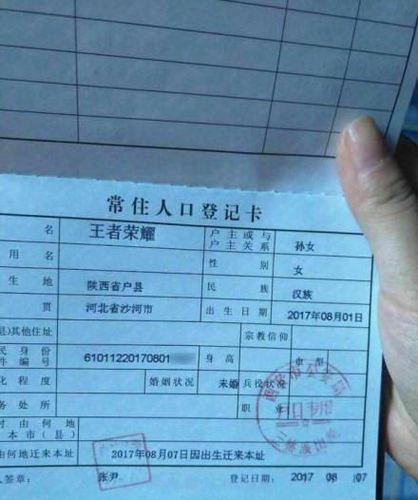 常住人口登记卡
名 王者荣耀 户主或与户主关系 孙女
用名 性别 女
生地 陕西省户县 民族 汉族
贯 河北省沙河市 出生日期 2017年08月01日
县)其他住址 宗教信仰
民身份件编号 61011220170801 身高 血型
化程度 婚姻状况 未婚 兵役状况
务处所 职业
时由何地本市(县)
由何地迁来本址 2017年08月07日因出生迁来本址
人签章: 张尹 登记日期: 2017 08 07
户口专用